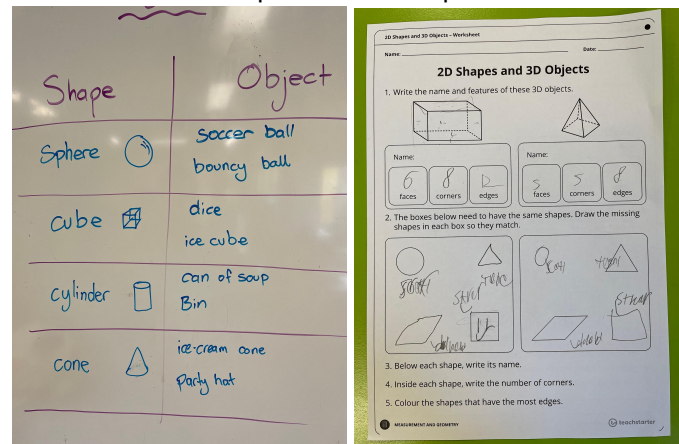 Shape
Object
Sphere
soccer ball
bouncy ball
cube
dice
ice cube
cylinder
can of soup
Bin
cone
ice-cream cone
party hat
2D Shapes and 3D Objects – Worksheet
Name:
Date:
2D Shapes and 3D Objects
1. Write the name and features of these 3D objects.
Name:
6
8
12
faces
corners
edges
Name:
5
5
8
faces
corners
edges
2. The boxes below need to have the same shapes. Draw the missing
shapes in each box so they match.
3. Below each shape, write its name.
4. Inside each shape, write the number of corners.
5. Colour the shapes that have the most edges.
MEASUREMENT AND GEOMETRY
teachstarter